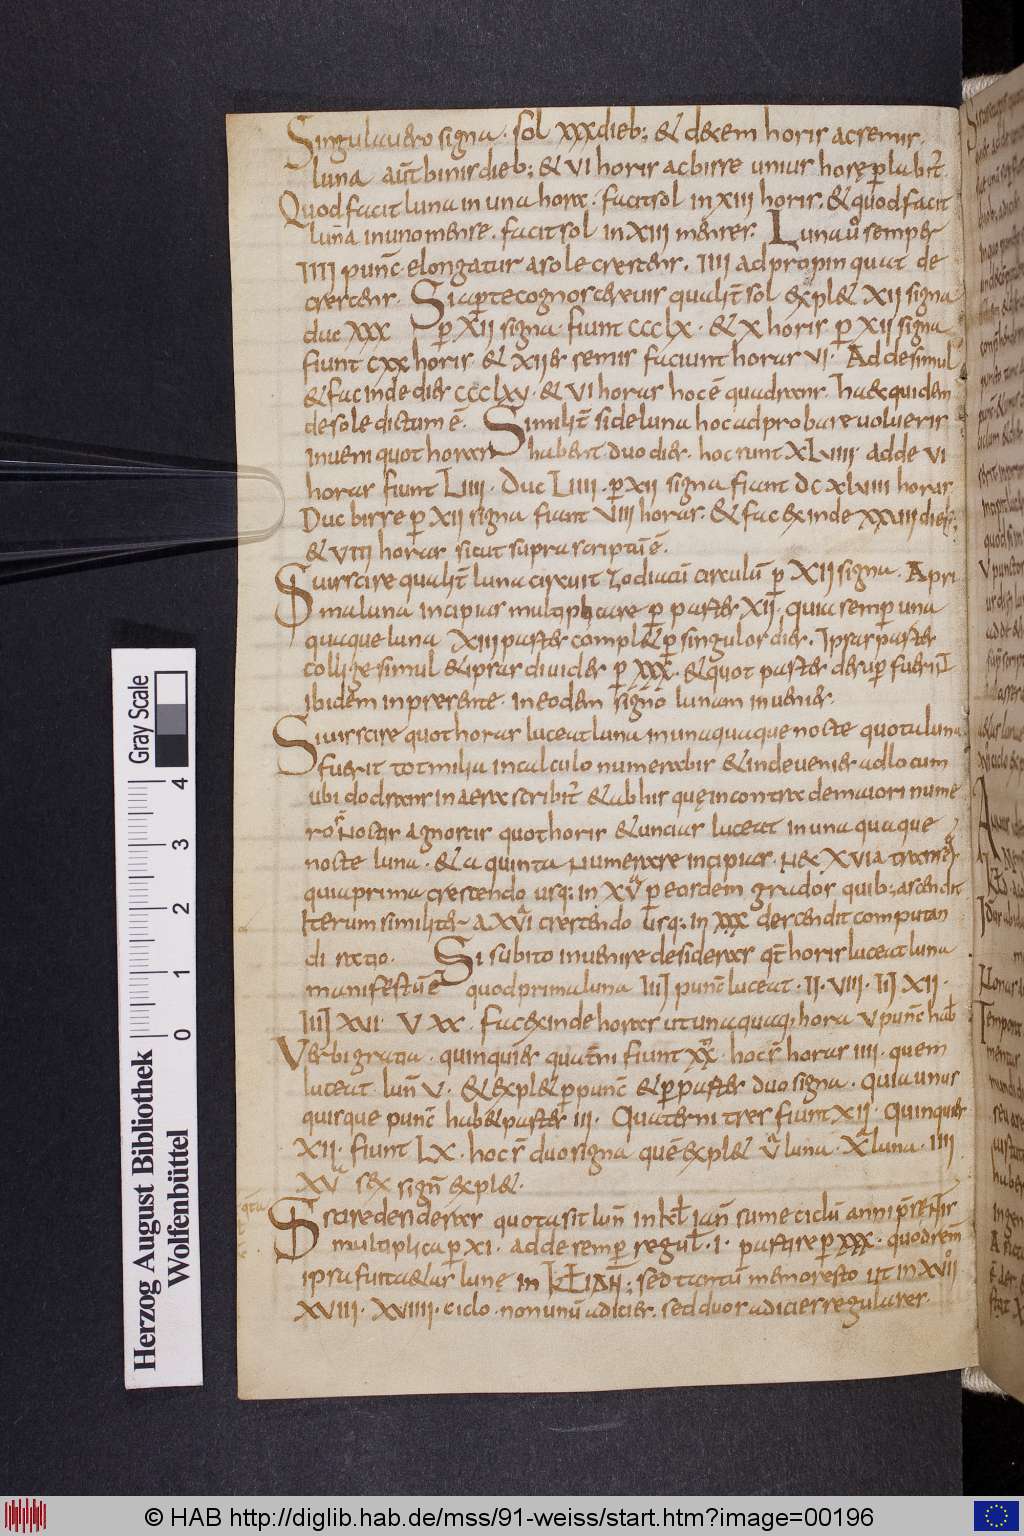 Singula uero signa · sol xxx dieb; & decem horis ac semis.
luna aut̄ binis dieb; & VI horis ac bisse unius horę p̱labit̄.
Quod facit luna in una hora · facit sol in XIII horis. & quod facit
luna in uno mense · facit sol in XIII menses. Luna ů semper
IIII punc̄ elongatur a sole crescens. IIII adpropinquat de
crescens. Si aperte cognoscere uis qualit̄ sol expl& XII signa
duc XXX p̱ XII signa fiunt CCCLX · & X horis p̱ XII signa
fiunt CXX horis & XII es semis faciunt horas VI · Adde simul
& fac inde dies CCCLXV · & VI horas hoc ē quadrans. Haec quidem
de sole dictum ē. Similit̄ si de luna hoc adprobare uolueris
inueni quot horas habent duo dies. hoc sunt XLVIII adde VI
horas fiunt LIIII · Duc LIIII · p̱ XII signa fiunt DCXLVIII horas
Duc bisse p̱ XII signa fiunt VIII horas. & fac exinde XXVII dies;
& VIII horas sicut supra scriptū ē.
Si uis scire qualit̄ luna circuit zodiacū circulū p̱ XII signa · A pri
ma luna incipias multiplicare p̱ partes XII · quia semp̱ una
quaque luna XIII partes compl& p̱ singulos dies. Ipsas partes
collige simul & ipsas diuides p̱ XXX · & quot partes desup̱ fuerīt
ibidem inpresente · in eodem signo lunam inuenies.
Si uis scire quot horas luceat luna in unaquaque nocte quota luna
fuerit tot milia in calculo numerabis & inde uenies ad locum
ubi dodrans in aera scribit̄ & ab his quę in contra de maiori nume
ro noctis agnoscis quot horis & uncias luceat in unaquaque
nocte luna · & a quinta numerare incipias · nec XVI a transmees
quia prima crescendo usq; in XV p̱ eosdem gradus quib; ascendit
Iterum similiter a XVI crescendo usq; in XXX descendit computan
di ratio. Si subito inuenire desideras qt̄ horis luceat luna
manifestū ē quod prima luna IIII punc̄ luceat · II · VIII · III XII ·
IIII XVI · V XX · Fac exinde horas ut unaquaq; hora V punc̄ hab̄
Verbi gratia · quinquies quat̄ni fiunt XX · hoc s̄ horas IIII · quem
luceat lun̄ V · & expl& p̱ punc̄ & p̱ partes duo signa · quia unus
quisque punc̄ hab& partes III · Quaterni tres fiunt XII · quinquies
XII · fiunt LX · hoc s̄ duo signa quē expl& V luna · X luna · IIII
XV sex sign̄ expl& ·
Si scire desideras quota sit lun̄ in kł ian̄ sume ciclū anni p̄sentis
multiplica p̱ XI · adde semp̱ reguł · I · partire p̱ XXX · quod rem̄
ipsa fuit aetas lunę in kł ian̄; sed tantū memor esto ut in XVII
XVIII · XVIIII · ciclo · non unū adicies. sed duos adicies regulares.
Herzog August Bibliothek
Wolfenbüttel
0 1 2 3 4
Gray Scale
© HAB http://diglib.hab.de/mss/91-weiss/start.htm?image=00196